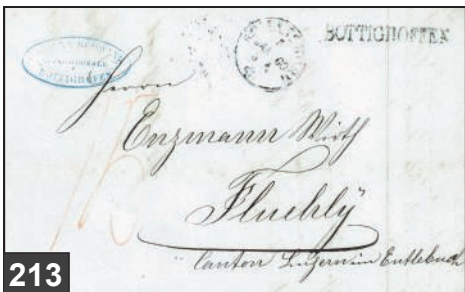 BOTTIGHOFFEN
BOTTIGHOFEN
Herrn
Enzmann Wirth
Fluehly
Canton Luzern im Entlebuch
213